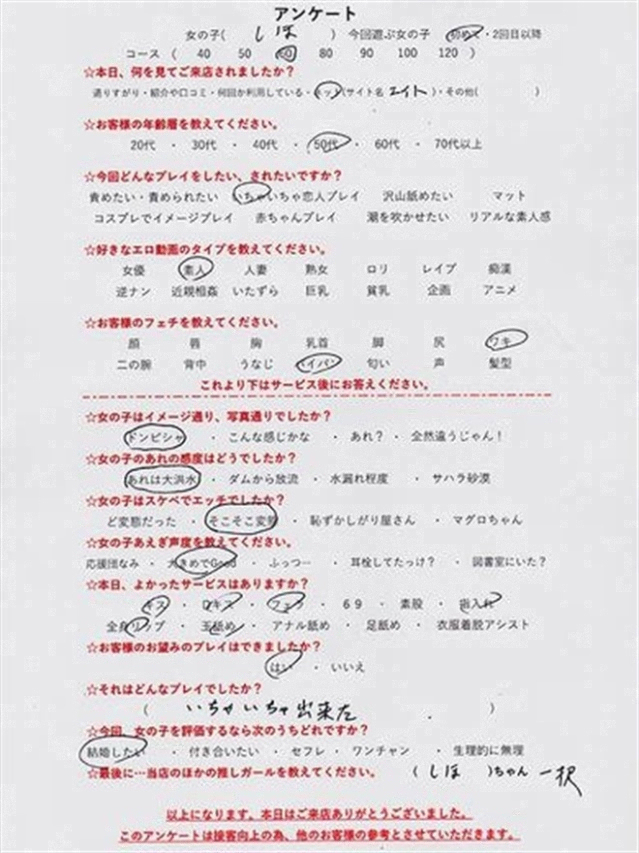 アンケート
女の子( しほ ) 今回遊ぶ女の子 初めて・2回目以降
コース ( 40 50 60 80 90 100 120 )
☆本日、何を見てご来店されましたか？
通りすがり・紹介や口コミ・何回か利用している・ネット(サイト名 エイト )・その他( )
☆お客様の年齢層を教えてください。
20代 ・ 30代 ・ 40代 ・ 50代 ・ 60代 ・ 70代以上
☆今回どんなプレイをしたい、されたいですか？
責めたい・責められたい いちゃいちゃ恋人プレイ 沢山舐めたい マット
コスプレでイメージプレイ 赤ちゃんプレイ 潮を吹かせたい リアルな素人感
☆好きなエロ動画のタイプを教えてください。
女優 素人 人妻 熟女 ロリ レイプ 痴漢
逆ナン 近親相姦 いたずら 巨乳 貧乳 企画 アニメ
☆お客様のフェチを教えてください。
顔 唇 胸 乳首 脚 尻 ワキ
二の腕 背中 うなじ パイパン 匂い 声 髪型
これより下はサービス後にお答えください。
☆女の子はイメージ通り、写真通りでしたか？
ドンピシャ ・ こんな感じかな ・ あれ？ ・ 全然違うじゃん！
☆女の子のあれの感度はどうでしたか？
あれは大洪水 ・ ダムから放流 ・ 水漏れ程度 ・ サハラ砂漠
☆女の子はスケベでエッチでしたか？
ど変態だった ・ そこそこ変態 ・ 恥ずかしがり屋さん ・ マグロちゃん
☆女の子あえぎ声度を教えてください。
応援団なみ ・ 大きめでGood ・ ふっつー ・ 耳栓してたっけ？ ・ 図書室にいた？
☆本日、よかったサービスはありますか？
キス ・ Dキス ・ フェラ ・ 69 ・ 素股 ・ 指入れ
全身リップ ・ 玉舐め ・ アナル舐め ・ 足舐め ・ 衣服着脱アシスト
☆お客様のお望みのプレイはできましたか？
はい ・ いいえ
☆それはどんなプレイでしたか？
( いちゃいちゃ出来た )
☆今回、女の子を評価するなら次のうちどれですか？
結婚したい ・ 付き合いたい ・ セフレ ・ ワンチャン ・ 生理的に無理
☆最後に…当店のほかの推しガールを教えてください。 ( しほ )ちゃん 一択
以上になります。本日はご来店ありがとうございました。
このアンケートは接客向上の為、他のお客様の参考とさせていただきます。